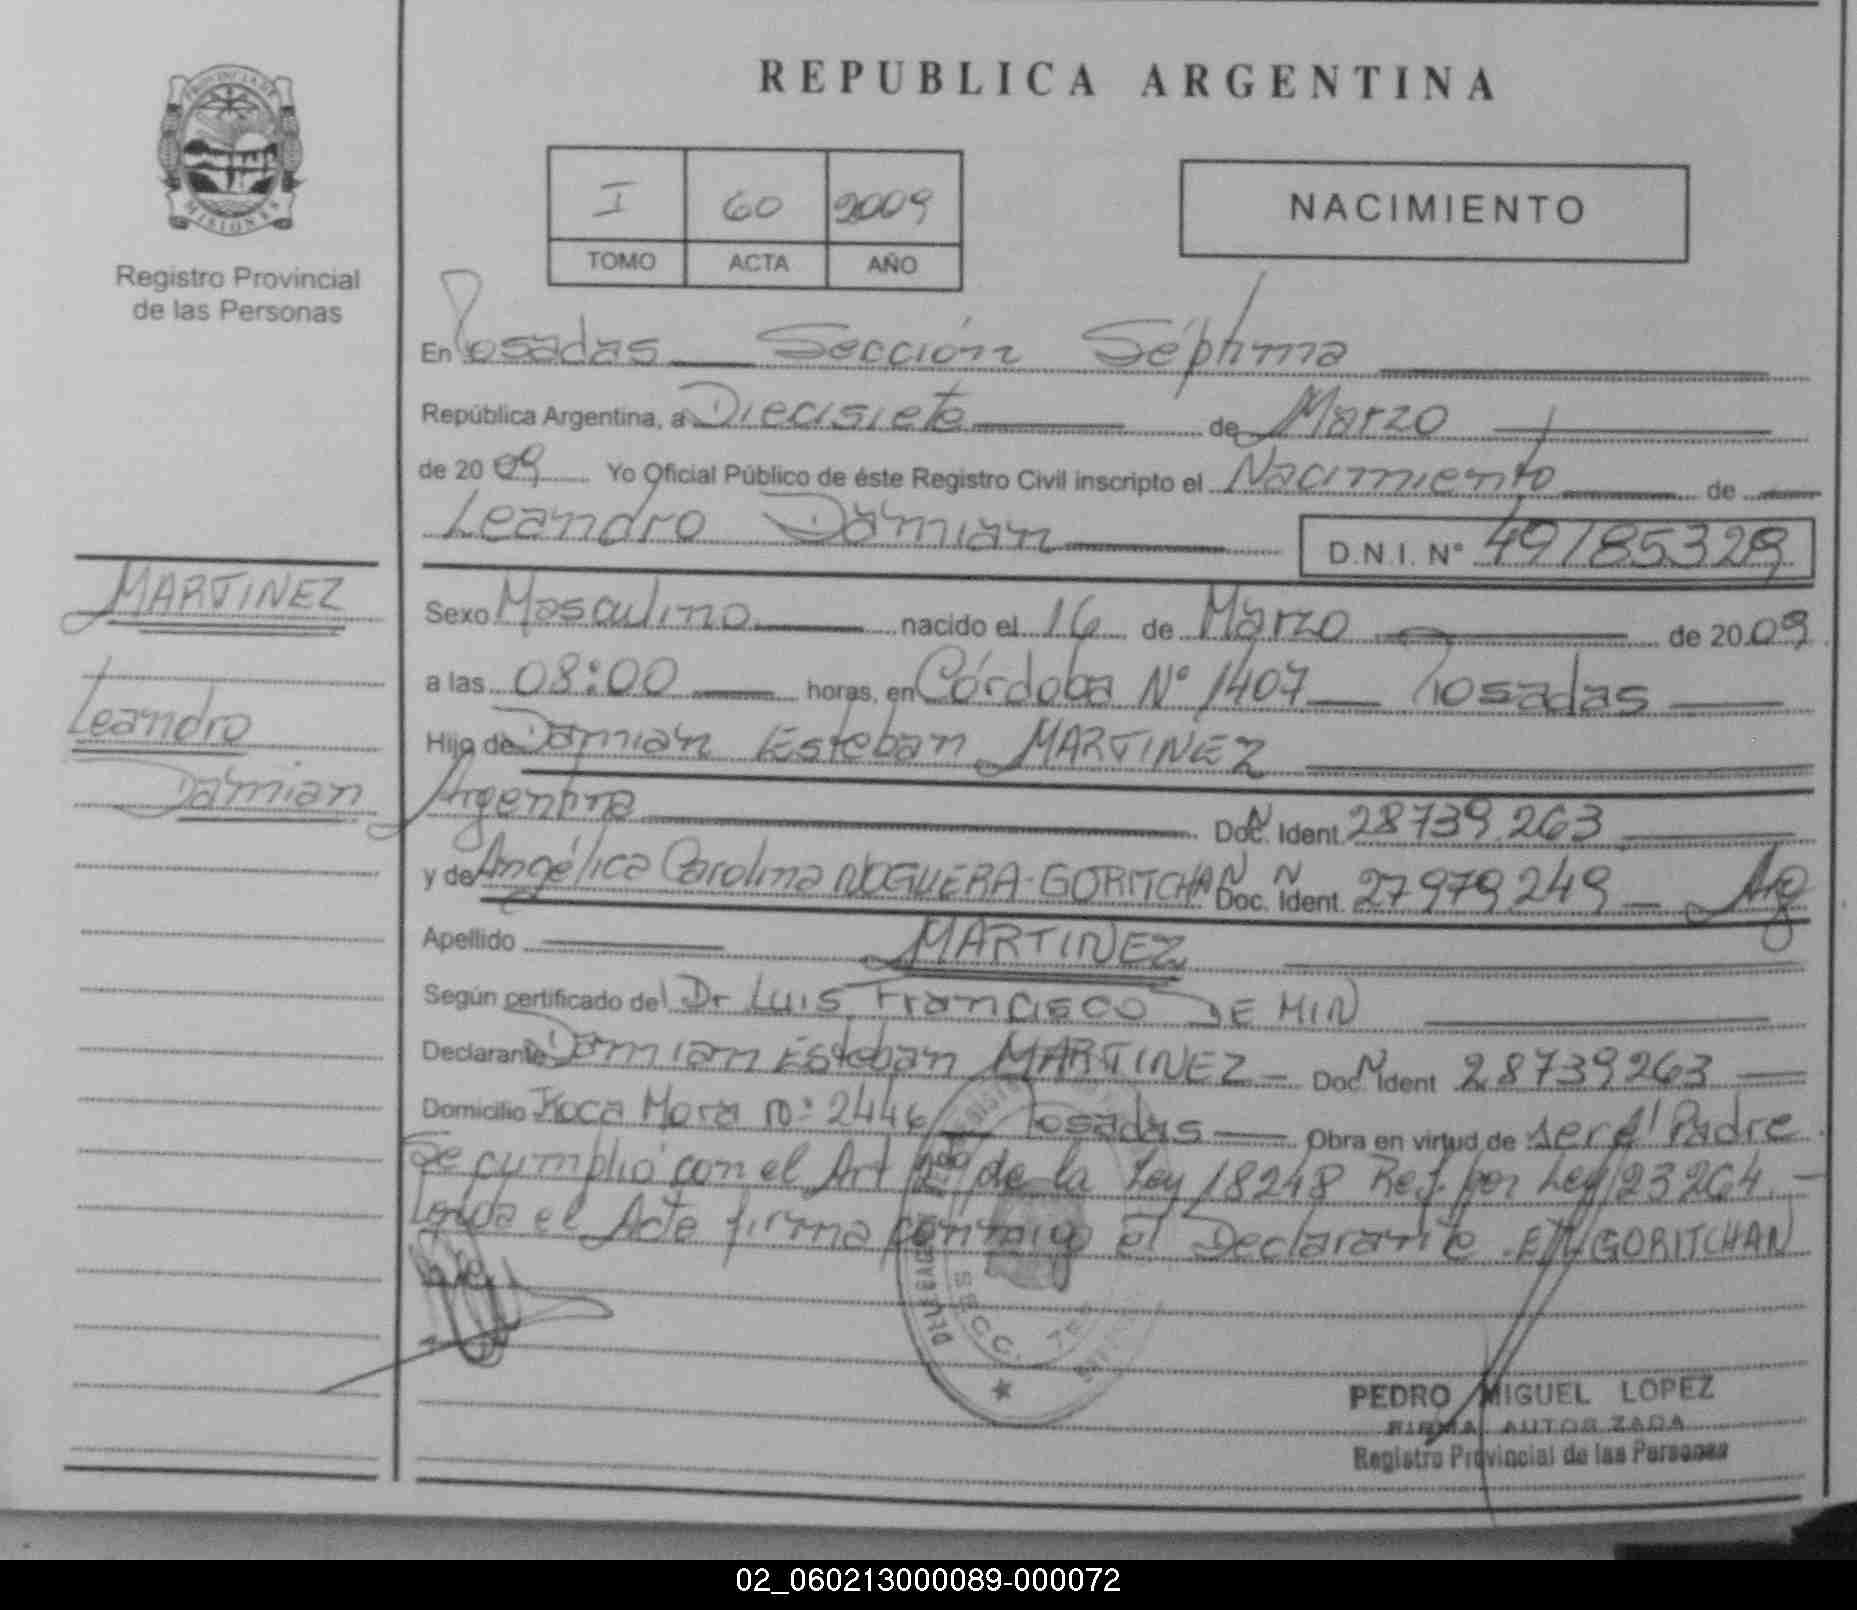 REPUBLICA ARGENTINA
PROVINCIA DE
MISIONES
Registro Provincial
de las Personas
I 60 2009
TOMO ACTA AÑO
NACIMIENTO
En Posadas Sección Séptima
República Argentina, a Diecisiete de Marzo
de 20 09 Yo Oficial Público de éste Registro Civil inscripto el Nacimiento de
Leandro Damian D.N.I. Nº 49185329
MARTINEZ
Leandro
Damian
Sexo Masculino nacido el 16 de Marzo de 20 09
a las 08:00 horas, en Córdoba Nº 1407 Posadas
Hijo de Damian Esteban MARTINEZ
Argentina Doc. Ident. 28739.263
y de Angélica Carolina NOGUERA-GORITCHAN Doc. Ident. 27979.249 Arg
Apellido MARTINEZ
Según certificado del Dr Luis Francisco DE MIN
Declarante Damian Esteban MARTINEZ Doc. Ident 28739263
Domicilio Roca Mora nº 2446 Posadas Obra en virtud de ser el Padre
Se cumplió con el Art 2º de la Ley 18248 Ref. por Ley 23264
Leida el Acta firma conmigo el Declarante. GORITCHAN
SECC. 7
PEDRO MIGUEL LOPEZ
FIRMA AUTORIZADA
Registro Provincial de las Personas
02_060213000089-000072